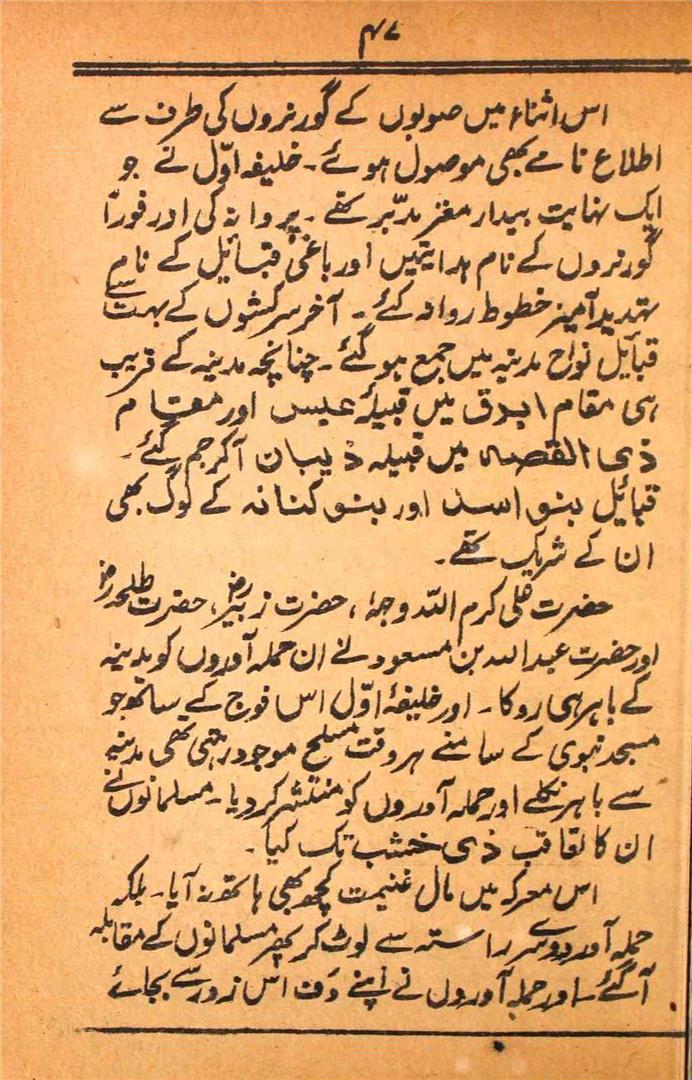 ۴۷
اس اثناء میں صوبوں کے گورنروں کی طرف سے
اطلاع نامے بھی موصول ہوئے۔ خلیفہ اوّل نے جو
ایک نہایت بیدار مغز مدبّر تھے۔ پروا نہ کی اور فوراً
گورنروں کے نام ہدایتیں اور باغی قبائیل کے نام
تہدید آمیز خطوط روانہ کئے۔ آخر سرکشوں کے بہت سے
قبائیل نواح مدینہ میں جمع ہو گئے۔ چنانچہ مدینہ کے قریب
ہی مقام ابرق میں قبیلۂ عبس اور مقام
ذی القصہ میں قبیلہ ذیبان آ کر جم گئے۔
قبائیل بنو اسد اور بنو کنانہ کے لوگ بھی
ان کے شریک تھے۔
حضرت علی کرم اللہ وجہۂ، حضرت زبیرؓ، حضرت طلحہؓ
اور حضرت عبداللہ بن مسعود نے ان حملہ آوروں کو مدینہ
کے باہر ہی روکا۔ اور خلیفۂ اوّل اس فوج کے ساتھ جو
مسجد نبوی کے سامنے ہر وقت مسلح موجود رہتی تھی مدینہ
سے باہر نکلے اور حملہ آوروں کو منتشر کر دیا۔ مسلمانوں نے
ان کا تعاقب ذی خشب تک کیا۔
اس معرکہ میں مال غنیمت کچھ بھی ہاتھ نہ آیا۔ بلکہ
حملہ آور دوسرے راستہ سے لوٹ کر پھر مسلمانوں کے مقابلہ
آ گئے۔ اور حملہ آوروں نے اپنے دَف اس زور سے بجائے